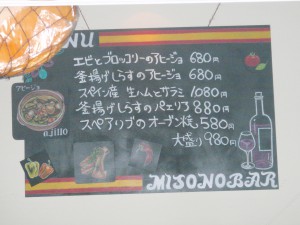 MENU
エビとブロッコリーのアヒージョ 680円
釜揚げしらすのアヒージョ 680円
スペイン産 生ハムとサラミ 1080円
釜揚げしらすのパエリア 880円
スペアリブのオーブン焼 580円
大盛り 980円
アヒージョ
MISONOBAR